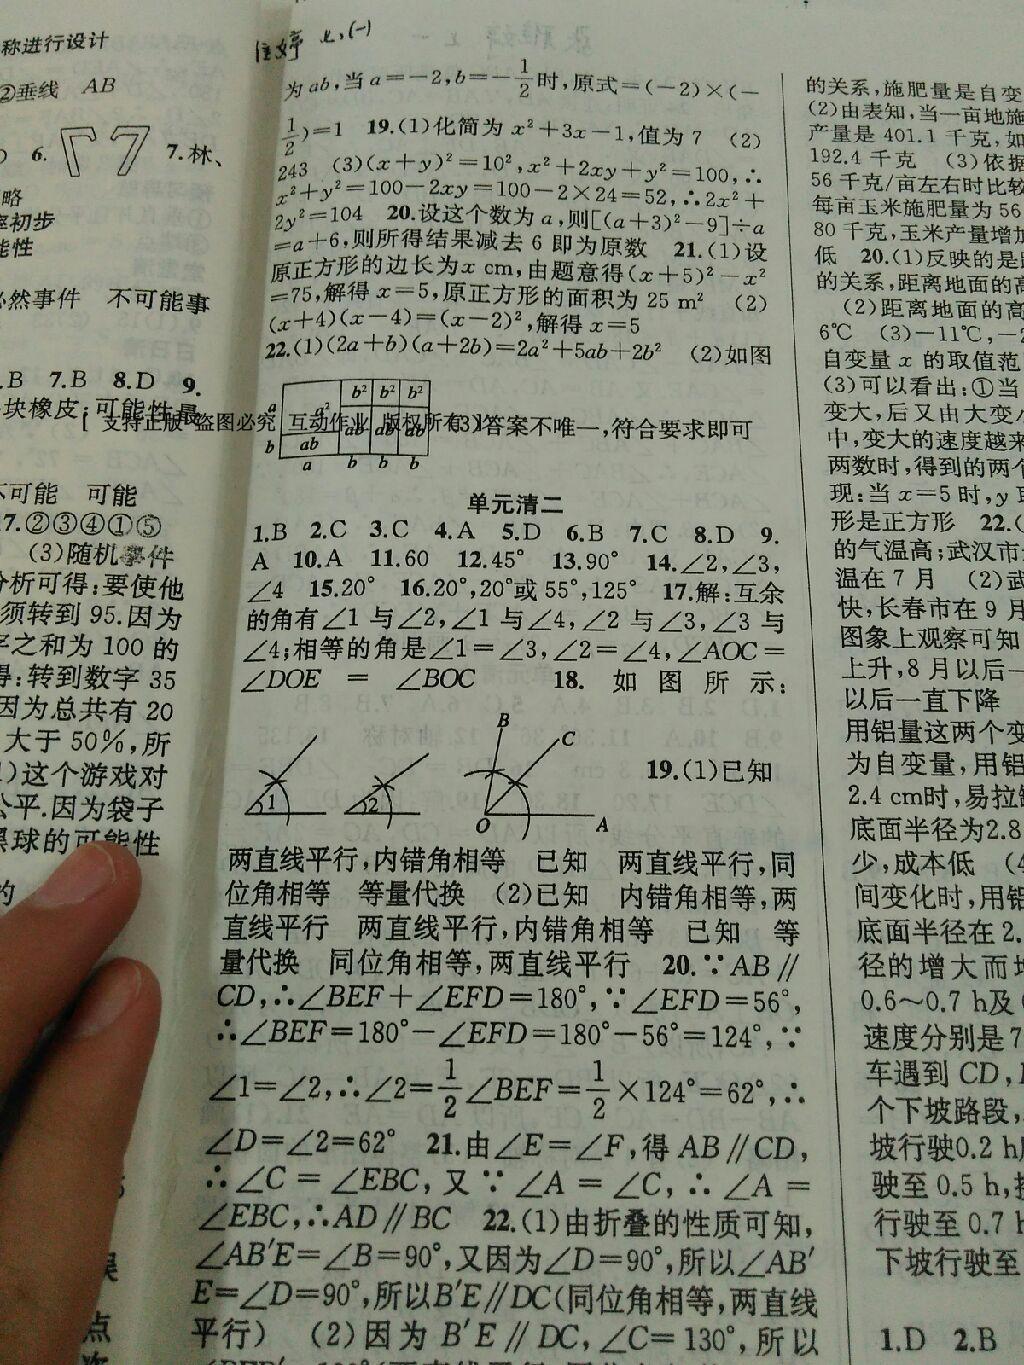 称进行设计
②垂线 AB
6. 7.林、
略
率初步
能性
必然事件 不可能事
.B 7.B 8.D 9.
块橡皮;可能性最
不可能 可能
17.②③④①⑤
(3)随机事件
分析可得:要使他
须转到 95.因为
字之和为 100 的
得:转到数字 35
因为总共有 20
大于 50%,所
)这个游戏对
公平.因为袋子
黑球的可能性
的
点
婷 七,(一)
为 ab,当 a=-2,b=-1/2时,原式=(-2)×(-
1/2)=1 19.(1)化简为 x²+3x-1,值为 7 (2)
243 (3)(x+y)²=10²,x²+2xy+y²=100,∴
x²+y²=100-2xy=100-2×24=52,∴2x²+
2y²=104 20.设这个数为 a,则[(a+3)²-9]÷a
=a+6,则所得结果减去 6 即为原数 21.(1)设
原正方形的边长为x cm,由题意得(x+5)²-x²
=75,解得 x=5,原正方形的面积为 25 m² (2)
(x+4)(x-4)=(x-2)²,解得 x=5
22.(1)(2a+b)(a+2b)=2a²+5ab+2b² (2)如图
b² b² b²
a a²
[ 支持正版 盗图必究 互动作业 版权所有 ]
(3)答案不唯一,符合要求即可
ab ab ab ab
b
a b b b
单元清二
1.B 2.C 3.C 4.A 5.D 6.B 7.C 8.D 9.
A 10.A 11.60 12.45° 13.90° 14.∠2,∠3,
∠4 15.20° 16.20°,20°或 55°,125° 17.解:互余
的角有∠1 与∠2,∠1 与∠4,∠2 与∠3,∠3 与
∠4;相等的角是∠1=∠3,∠2=∠4,∠AOC=
∠DOE = ∠BOC 18. 如 图 所 示:
B
C
1 2 O A
19.(1)已知
两直线平行,内错角相等 已知 两直线平行,同
位角相等 等量代换 (2)已知 内错角相等,两
直线平行 两直线平行,内错角相等 已知 等
量代换 同位角相等,两直线平行 20.∵AB∥
CD,∴∠BEF+∠EFD=180°,∵∠EFD=56°,
∴∠BEF=180°-∠EFD=180°-56°=124°,∵
∠1=∠2,∴∠2=1/2∠BEF=1/2×124°=62°,∴
∠D=∠2=62° 21.由∠E=∠F,得 AB∥CD,
∴∠C=∠EBC,又∵∠A=∠C,∴∠A=
∠EBC,∴AD∥BC 22.(1)由折叠的性质可知,
∠AB′E=∠B=90°,又因为∠D=90°,所以∠AB′
E=∠D=90°,所以B′E∥DC(同位角相等,两直线
平行) (2)因为 B′E∥DC,∠C=130°,所以
的关系,施肥量是自变
(2)由表知,当一亩地施
产量是 401.1 千克,如
192.4 千克 (3)依据
56 千克/亩左右时比较
每亩玉米施肥量为 56
80 千克,玉米产量增加
低 20.(1)反映的是
的关系,距离地面的高
(2)距离地面的高
6℃ (3)-11℃,-2
自变量 x 的取值范
(3)可以看出:①当
变大,后又由大变小
中,变大的速度越来
两数时,得到的两个
现:当 x=5 时,y 取
形是正方形 22.(
的气温高;武汉市
温在 7 月 (2)武
快,长春市在 9 月
图象上观察可知
上升,8 月以后一
以后一直下降
用铝量这两个变
为自变量,用铝
2.4 cm时,易拉罐
底面半径为2.8
少,成本低 (4
间变化时,用铝
底面半径在 2.
径的增大而增
0.6～0.7 h及
速度分别是 7
车遇到 CD,
个下坡路段,
坡行驶0.2 h
驶至 0.5 h,
行驶至 0.7 h
下坡行驶至
1.D 2.B